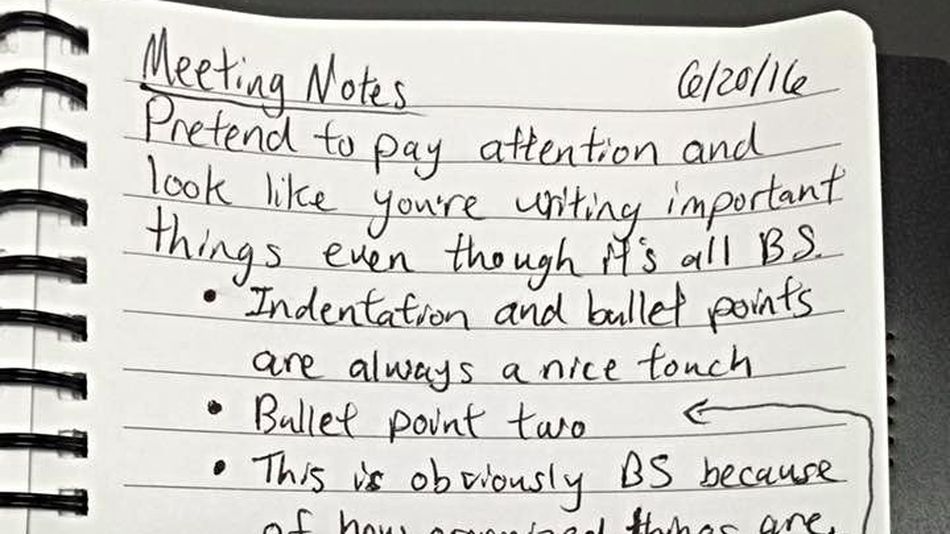 Meeting Notes 6/20/16
Pretend to pay attention and
look like you're writing important
things even though it's all BS.
• Indentation and bullet points
are always a nice touch
• Bullet point two
• This is obviously BS because
of how organized things are.